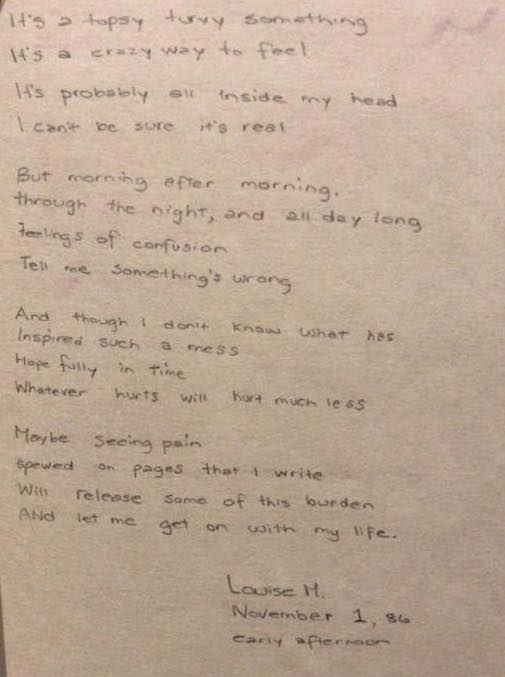 It's a topsy turvy something
It's a crazy way to feel
It's probably all inside my head
I can't be sure it's real
But morning after morning.
through the night, and all day long
Feelings of confusion
Tell me something's wrong
And though I don't know what has
Inspired such a mess
Hope fully in time
Whatever hurts will hurt much less
Maybe seeing pain
spewed on pages that I write
Will release some of this burden
ANd let me get on with my life.
Louise M.
November 1, 86
early afternoon